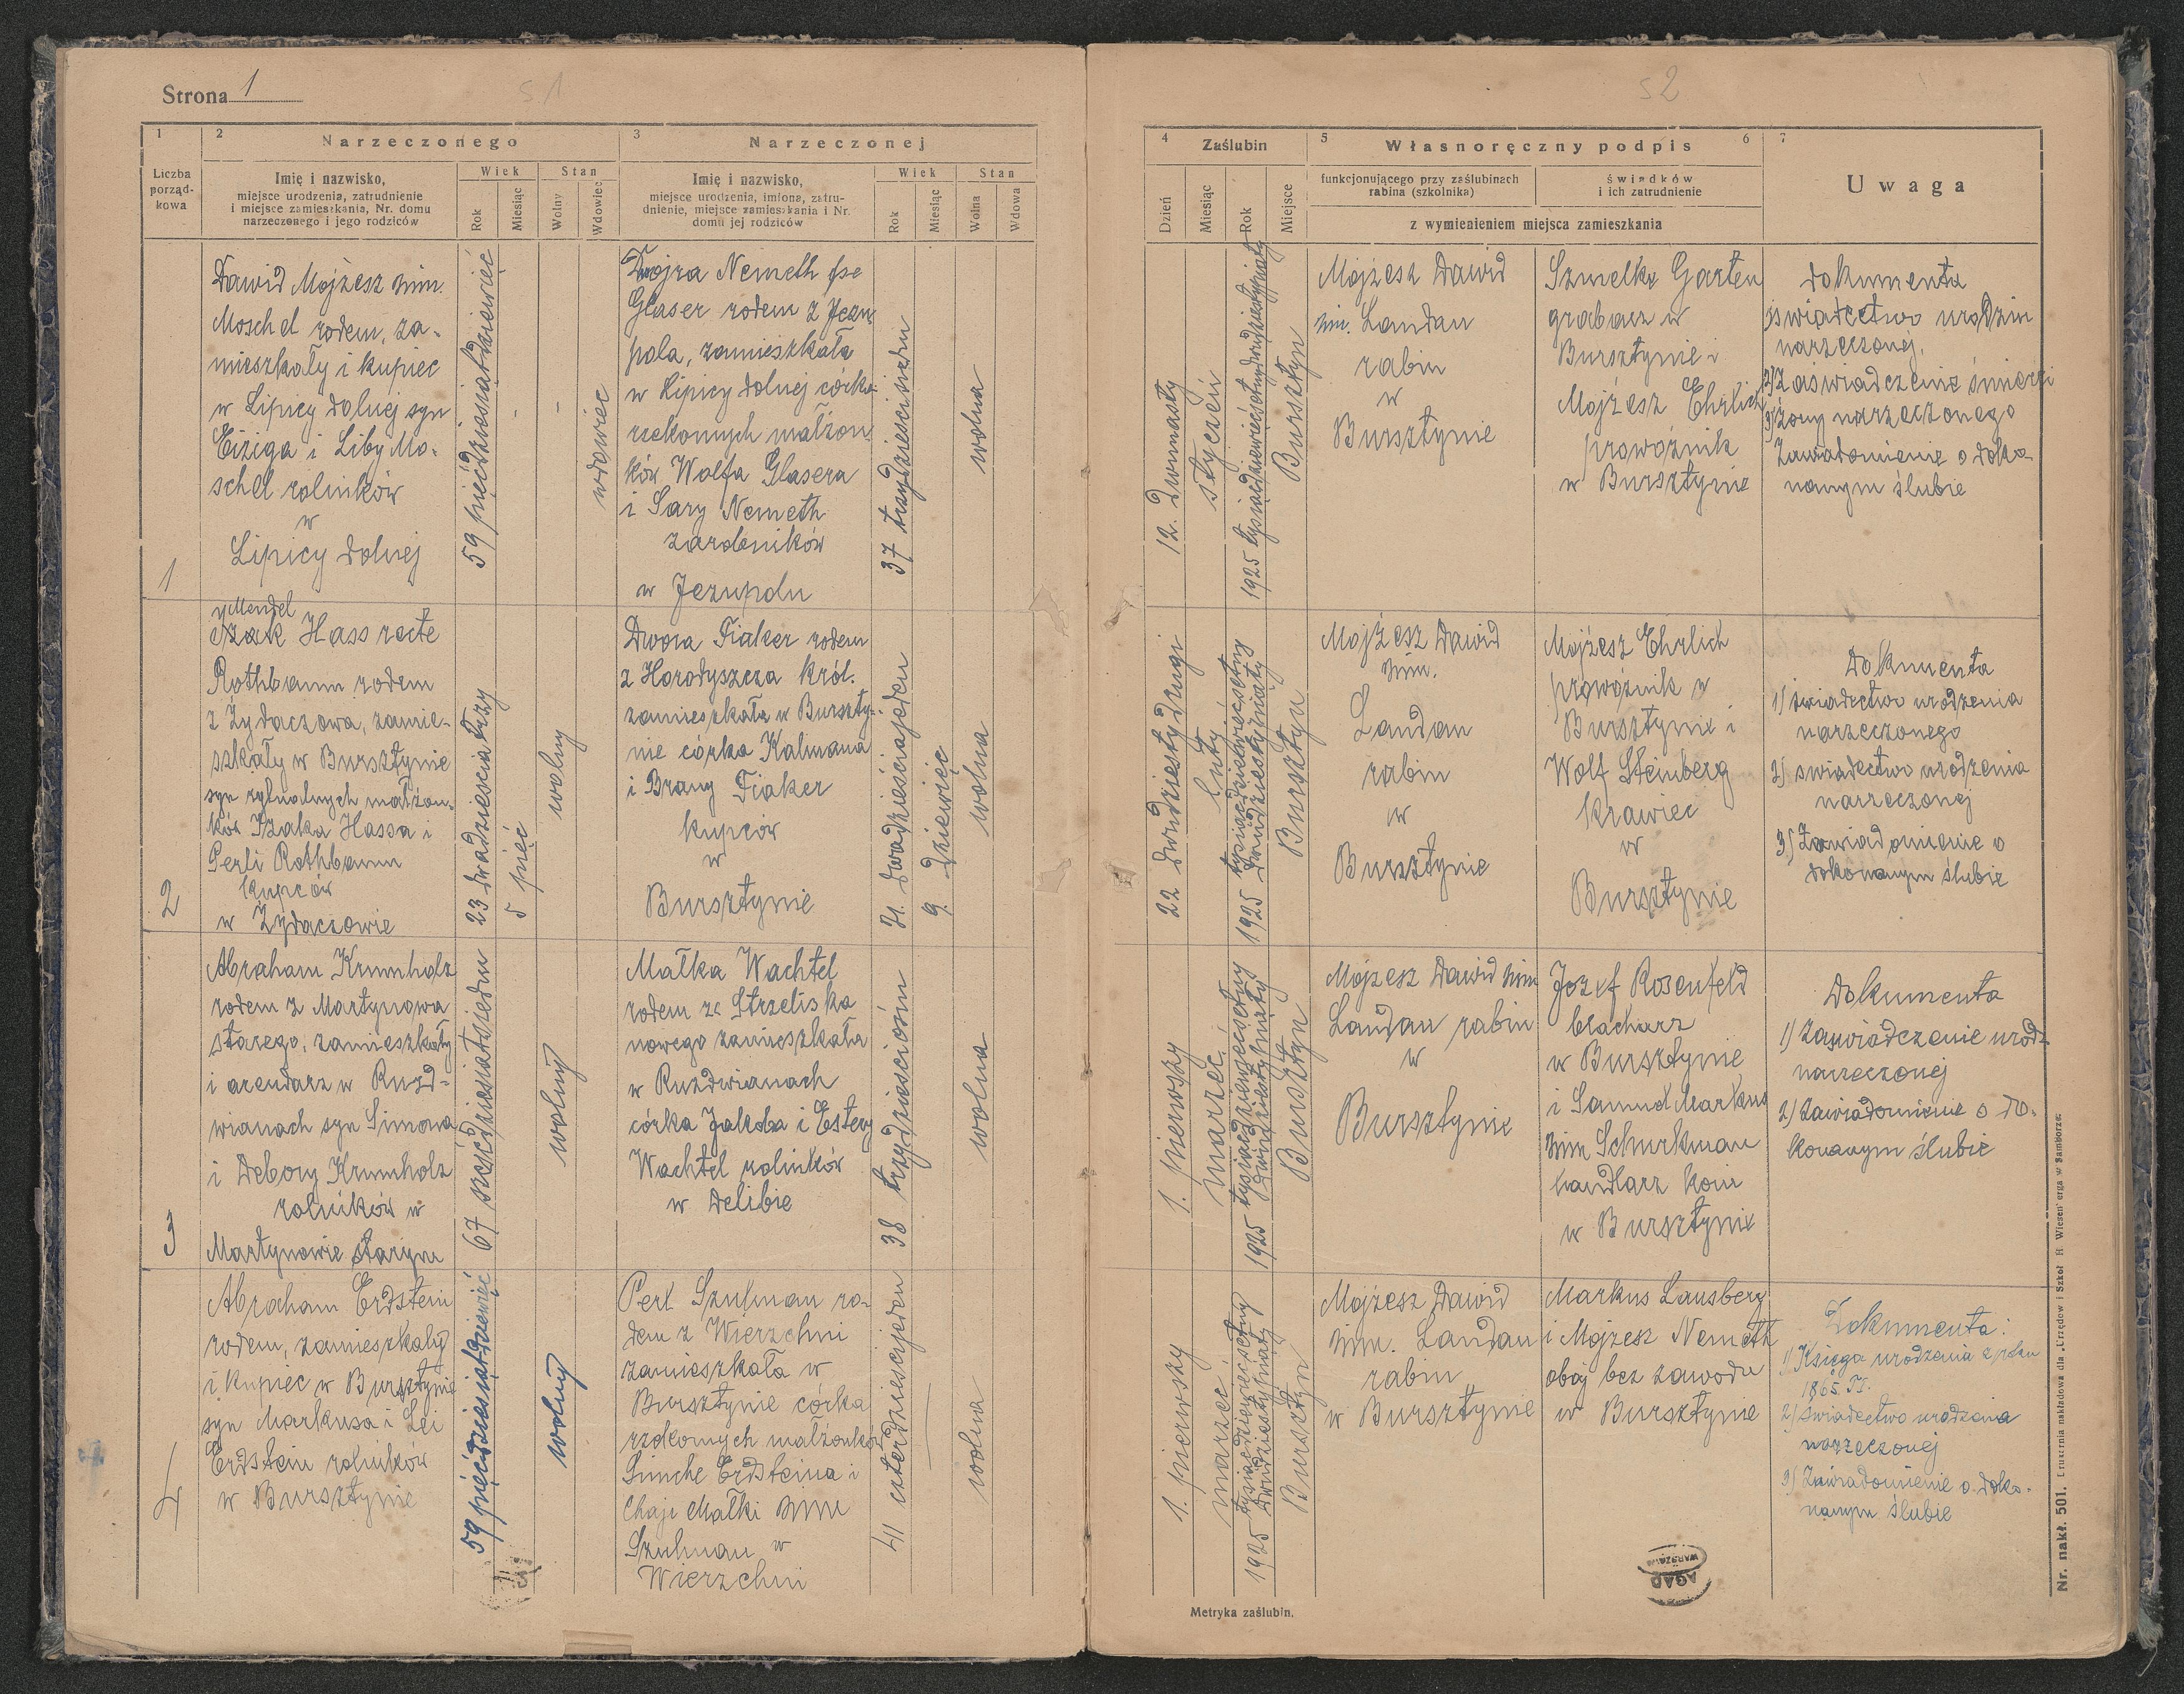 Strona 1
51
1
Liczba
porząd-
kowa
2
Narzeczonego
Imię i nazwisko,
miejsce urodzenia, zatrudnienie
i miejsce zamieszkania, Nr. domu
narzeczonego i jego rodziców
Wiek
Rok
Miesiąc
Stan
Wolny
Wdowiec
3
Narzeczonej
Imię i nazwisko,
miejsce urodzenia, imiona, zatru-
dnienie, miejsce zamieszkania i Nr.
domu jej rodziców
Wiek
Rok
Miesiąc
Stan
Wolna
Wdowa
1
Dawid Mojżesz mim.
Moschel rodem, za-
mieszkały i kupiec
w Lipicy dolnej syn
Eiziga i Liby Mo-
schel rolników
w
Lipicy dolnej
59 pięćdziesiątdziewięć
-
-
wdowiec
Dwojra Nemeth fse
Glaser rodem z Jezu-
pola, zamieszkała
w Lipicy dolnej córka
rzekomych małżon-
ków Wolfa Glasera
i Sary Nemeth
zarobników
w Jezupolu
37 trzydzieścisiedm
wolna
2
Mendel
Izak Hass recte
Rothbaum rodem
z Żydaczowa, zamie-
szkały w Bursztynie
syn rytualnych małżon-
ków Izaka Hassa i
Perli Rothbaum
kupców
w Żydaczowie
23 dwadzieścia trzy
5 pięć
wolny
Dwora Fiaker rodem
z Horodyszcza król.
zamieszkała w Burszty-
nie córka Kalmana
i Brany Fiaker
kupców
w
Bursztynie
21. dwadzieściajeden
9. dziewięć
wolna
3
Abraham Krumholz
rodem z Martynowa
starego, zamieszkały
i arendarz w Ruzd-
wianach syn Simona
i Debory Krumholz
rolników w
Martynowie starym
67 sześćdziesiątsiedm
wolny
Małka Wachtel
rodem ze Strzeliska
nowego zamieszkała
w Ruzdwianach
córka Jakóba i Estery
Wachtel rolników
w Delibie
38 trzydzieściośm
wolna
4
Abraham Erdstein
rodem, zamieszkały
i kupiec w Bursztynie
syn Markusa i Lei
Erdstein rolników
w Bursztynie
59 pięćdziesiątdziewięć
wolny
Perl Szulman ro-
dem z Wierzchni
zamieszkała w
Bursztynie córka
rzekomych małżonków
Simche Erdsteina i
Chaji Małki mim
Szulman w
Wierzchni
41 czterdzieścijeden
wolna
52
4
Zaślubin
Dzień
Miesiąc
Rok
Miejsce
5
Własnoręczny podpis
6
funkcjonującego przy zaślubinach
rabina (szkolnika)
świadków
i ich zatrudnienie
z wymienieniem miejsca zamieszkania
7
Uwaga
12. Dwunasty
styczeń
1925 tysiącdziewięćsetdwudziestypiąty
Bursztyn
Mojżesz Dawid
mim. Landau
rabin
w
Bursztynie
Szmelke Garten
grabarz w
Bursztynie i
Mojżesz Ehrlich
prowoźnik
w Bursztynie
Dokumenta
1) świadectwo urodzin
narzeczonej.
2) Zaświadczenie śmierci
żony narzeczonego
3) Zawiadomienie o doko-
nanym ślubie
22 dwudziestydrugi
luty
1925 tysiącdziewięćsetny
dwudziestypiąty
Bursztyn
Mojżesz Dawid
mim.
Landau
rabin
w
Bursztynie
Mojżesz Ehrlich
prowoźnik w
Bursztynie i
Wolf Steinberg
krawiec
w
Bursztynie
Dokumenta
1) świadectwo urodzenia
narzeczonego
2) świadectwo urodzenia
narzeczonej
3) Zawiadomienie o
dokonanym ślubie
1. pierwszy
marzec
1925 tysiącdziewięćsetny
dwudziestypiąty
Bursztyn
Mojżesz Dawid mim
Landau rabin
w
Bursztynie
Jozef Rosenfeld
blacharz
w Bursztynie
i Samuel Markus
mim Schurkman
handlarz koni
w Bursztynie
Dokumenta
1) Zaświadczenie urodz.
narzeczonej
2) Zawiadomienie o do-
konanym ślubie
1. pierwszy
marzec
1925 tysiącdziewięćsetny
dwudziestypiąty
Bursztyn
Mojżesz Dawid
mim. Landau
rabin
w Bursztynie
Markus Lausberg
i Mojżesz Nemeth
obaj bez zawodu
w Bursztynie
Dokumenta:
1) Księga urodzenia z roku
1865.
2) świadectwo urodzenia
narzeczonej
3) Zawiadomienie o doko-
nanym ślubie
AGAD
WARSZAWA
Metryka zaślubin.
Nr. nakł. 501. Drukarnia nakładowa dla „Urzędów i Szkół H. Wiesenberga w Samborze.